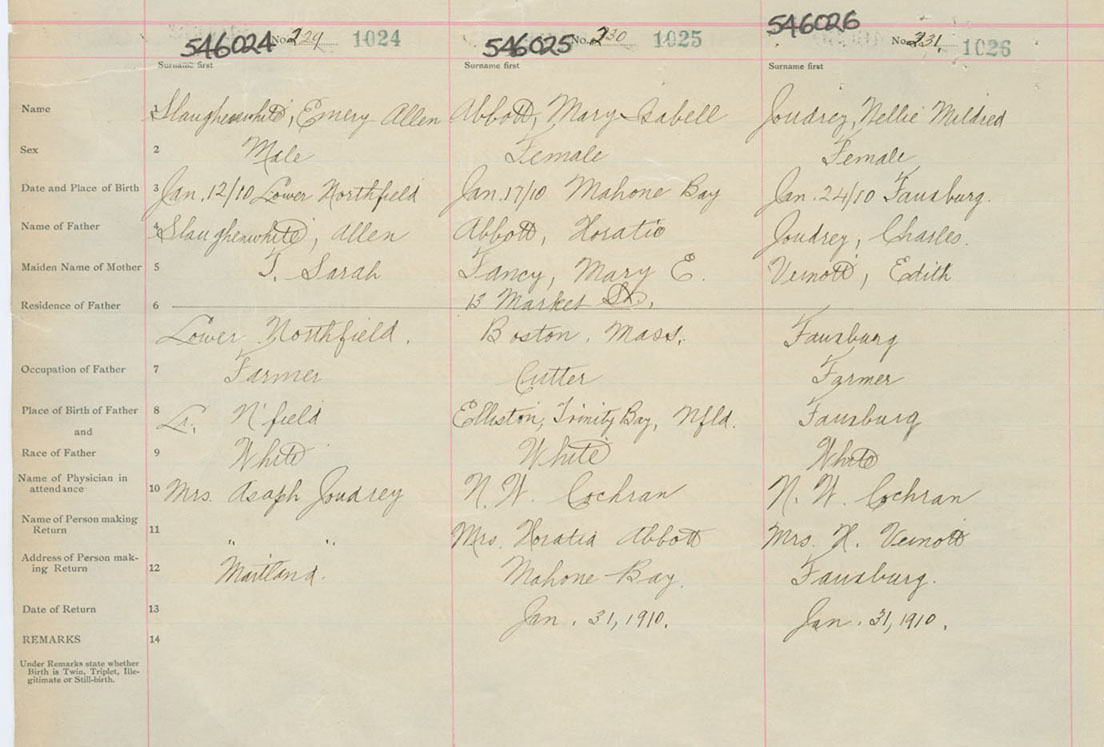 546024 No. 229 1024 546025 No. 230 1025 546026 No. 231. 1026
Surname first Surname first Surname first
Name 1 Slaughenwhite, Emery Allen Abbott, Mary Isabell Joudrey, Nellie Mildred
Sex 2 Male Female Female
Date and Place of Birth 3 Jan. 12/10 Lower Northfield Jan. 17/10 Mahone Bay Jan. 24/10 Fauxburg.
Name of Father 4 Slaughenwhite, Allen Abbott, Horatio Joudrey, Charles.
Maiden Name of Mother 5 T. Sarah Fancy, Mary E. Veinott, Edith
Residence of Father 6 13 Market St.,
Lower Northfield. Boston, Mass. Fauxburg
Occupation of Father 7 Farmer Cutter Farmer
Place of Birth of Father 8 Lr. N'field Elliston, Trinity Bay, Nfld. Fauxburg
and
Race of Father 9 White White White
Name of Physician in
attendance 10 Mrs. Asaph Joudrey N. W. Cochran N. W. Cochran
Name of Person making
Return 11 " " Mrs. Horatio Abbott Mrs. H. Veinott
Address of Person mak-
ing Return 12 Maitland. Mahone Bay. Fauxburg.
Date of Return 13 Jan. 31, 1910. Jan. 31, 1910.
REMARKS 14
Under Remarks state whether
Birth is Twin, Triplet, Ille-
gitimate or Still-birth.